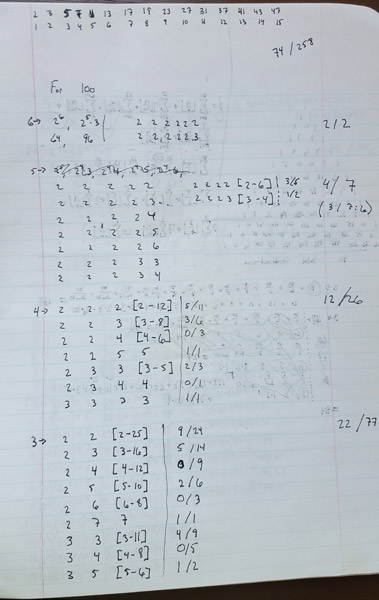 2 3 5 7 11 13 17 19 23 27 31 37 41 43 47
1 2 3 4 5 6 7 8 9 10 11 12 13 14 15
74/258
For 100
6→ 2⁶, 2⁵·3 2 2 2 2 2 2 2/2
64, 96 2 2 2 2 2 3
5→
2 2 2 2 2 2 2 2 2 [2-6] 3/5 4/7
2 2 2 2 3 2 2 2 3 [3-4] 1/2
2 2 2 2 4 (3/7:6)
2 2 2 2 5
2 2 2 2 6
2 2 2 3 3
2 2 2 3 4
4→ 2 2 2 [2-12] 5/11 12/26
2 2 3 [3-8] 3/6
2 2 4 [4-6] 0/3
2 2 5 5 1/1
2 3 3 [3-5] 2/3
2 3 4 4 0/1
3 3 3 3 1/1
3→ 2 2 [2-25] 9/24 22/77
2 3 [3-16] 5/14
2 4 [4-12] 0/9
2 5 [5-10] 2/6
2 6 [6-8] 0/3
2 7 7 1/1
3 3 [3-11] 4/9
3 4 [4-8] 0/5
3 5 [5-6] 1/2